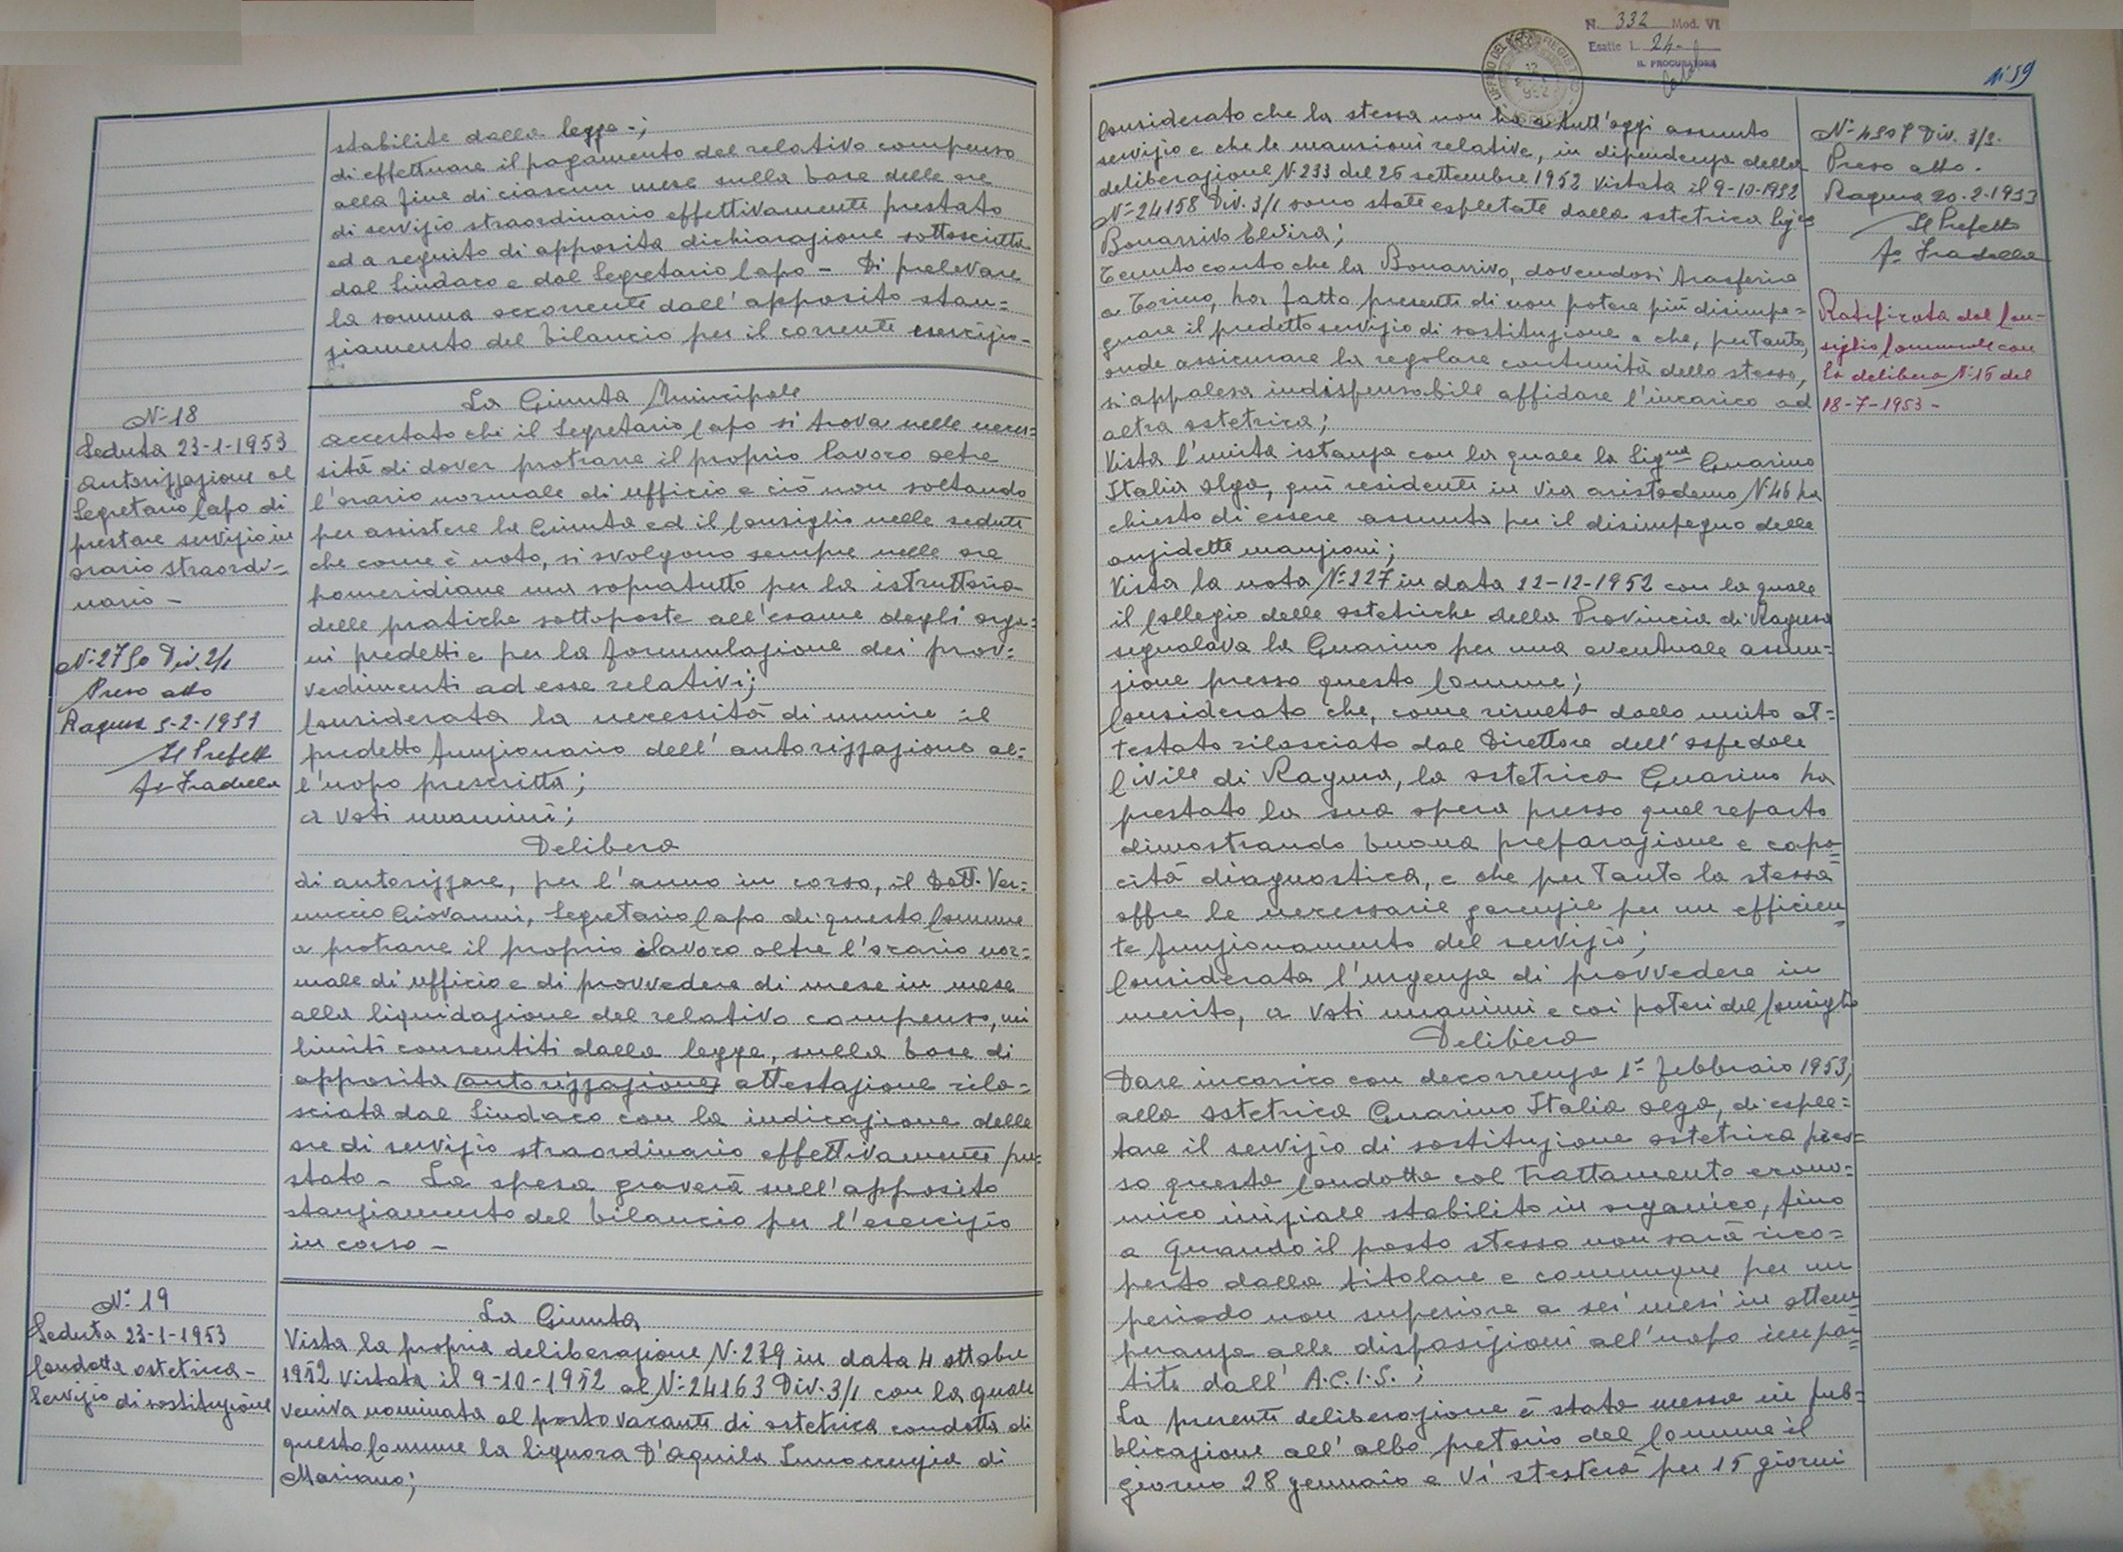 stabilite dalla legge -;
di effettuare il pagamento del relativo compenso
alla fine di ciascun mese sulla base delle ore
di servizio straordinario effettivamente prestato
ed a seguito di apposita dichiarazione sottoscritta
dal Sindaco e dal Segretario Capo - Di prelevare
la somma occorrente dall'apposito stan=
ziamento del bilancio per il corrente esercizio-
N° 18
Seduta 23-1-1953
Autorizzazione al
Segretario Capo di
prestare servizio in
orario straordi-
nario -
N° 2750 Div. 2/1
Preso atto
Ragusa 5-2-1953
Il Prefetto
fo Fradella
La Giunta Municipale
accertato che il Segretario Capo si trova nelle neces=
sità di dover protrarre il proprio lavoro oltre
l'orario normale di ufficio e ciò non soltando
per assistere la Giunta ed il Consiglio nelle sedute
che come è noto, si svolgono sempre nelle ore
pomeridiane ma sopratutto per la istruttoria
delle pratiche sottoposte all'esame degli orga=
ni predetti e per la formulazione dei prov=
vedimenti ad esse relativi;
Considerata la necessità di munire il
predetto funzionario dell'autorizzazione al=
l'uopo prescritta;
a voti unanimi;
Delibera
di autorizzare, per l'anno in corso, il Dott. Ver=
nuccio Giovanni, Segretario Capo di questo Comune
a protrarre il proprio lavoro oltre l'orario nor=
male di ufficio e di provvedere di mese in mese
alla liquidazione del relativo compenso, nei
limiti consentiti dalla legge, sulla base di
apposita autorizzazione attestazione rila=
sciata dal Sindaco con la indicazione delle
ore di servizio straordinario effettivamente pre=
stato - La spesa graverà sull'apposito
stanziamento del bilancio per l'esercizio
in corso -
N° 19
Seduta 23-1-1953
Condotta ostetrica -
Servizio di sostituzione
La Giunta
Vista la propria deliberazione N. 239 in data 4 ottobre
1952 vistata il 9-10-1952 al N° 24163 Div. 3/1 con la quale
veniva nominata al posto vacante di ostetrica condotta di
questo Comune la Signora D'Aquila Innocenzia di
Mariano;
N. 332 Mod. VI
Esatte L. 24-
IL PROCURATORE
N° 59
Considerato che la stessa non ha a tutt'oggi assunto
servizio e che le mansioni relative, in dipendenza della
deliberazione N. 233 del 26 settembre 1952 vistata il 9-10-1952
N° 24158 Div. 3/1 sono state espletate dalla ostetrica
Bonarrivo Elvira;
Tenuto conto che la Bonarrivo, dovendosi trasferire
a Torino, ha fatto presente di non potere più disimpe=
gnare il predetto servizio di sostituzione e che, pertanto,
onde assicurare la regolare continuità dello stesso,
si appalesa indispensabile affidare l'incarico ad
altra ostetrica;
Vista l'unita istanza con la quale la Sig.na Guarino
Italia Olga, qui residente in via Aristodemo N° 46 ha
chiesto di essere assunta per il disimpegno delle
anzidette manzioni;
Vista la nota N° 227 in data 12-12-1952 con la quale
il Collegio delle ostetriche della Provincia di Ragusa
segnalava la Guarino per una eventuale assun=
zione presso questo Comune;
Considerato che, come risulta dallo unito at=
testato rilasciato dal Direttore dell'ospedale
Civile di Ragusa, la ostetrica Guarino ha
prestato la sua opera presso quel reparto
dimostrando buona preparazione e capa=
cità diagnostica, e che per tanto la stessa
offre le necessarie garenzie per un efficien=
te funzionamento del servizio;
Considerata l'urgenza di provvedere in
merito, a voti unanimi e coi poteri del Consiglio
Delibera
Dare incarico con decorrenza 1° febbraio 1953,
alla ostetrica Guarino Italia Olga, di esple=
tare il servizio di sostituzione ostetrica pres=
so questa Condotta col trattamento econo=
mico iniziale stabilito in organico, fino
a quando il posto stesso non sarà rico=
perto dalla titolare e comunque per un
periodo non superiore a sei mesi in ottem=
peranza alle disposizioni all'uopo impar=
tite dall'A.C.I.S.;
La presente deliberazione è stata messa in pub=
blicazione all'albo pretorio del Comune il
giorno 28 gennaio e vi stesterà per 15 giorni
Div. 3/3.
Preso atto.
Ragusa 20-2-1953
Il Prefetto
fo Fradella
Ratificata dal Con-
siglio Comunale con
la delibera N° 15 del
18-7-1953 -